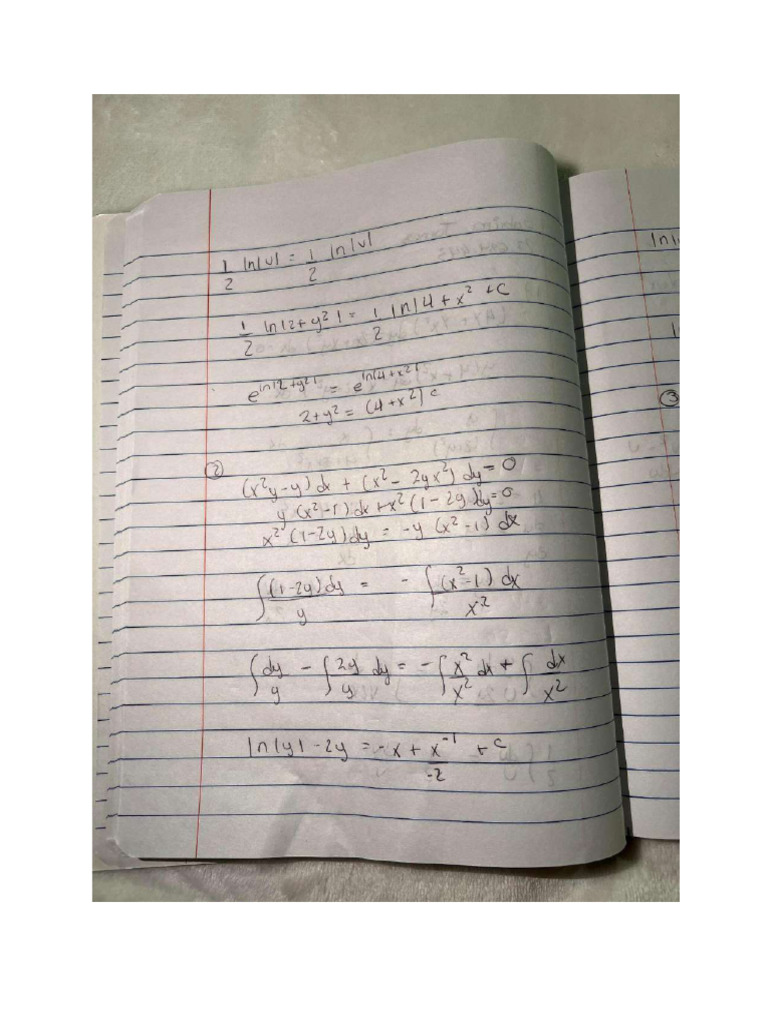 1/2 ln|v| = 1/2 ln|v|
1/2 ln|2+y²| = 1/2 ln|4+x² +c
e^ln|2+y²| = e^ln|4+x²|
2+y² = (4+x²) c
②
(x²y-y)dx + (x²-2yx²)dy=0
y(x²-1)dx+x²(1-2y)dy=0
x²(1-2y)dy = -y(x²-1)dx
∫(1-2y)dy/y = -∫(x²-1)dx/x²
∫dy/y - ∫2y/y dy = -∫x²/x² dx + ∫dx/x²
ln|y|-2y = -x + x⁻¹/-2 +c
ln|
③